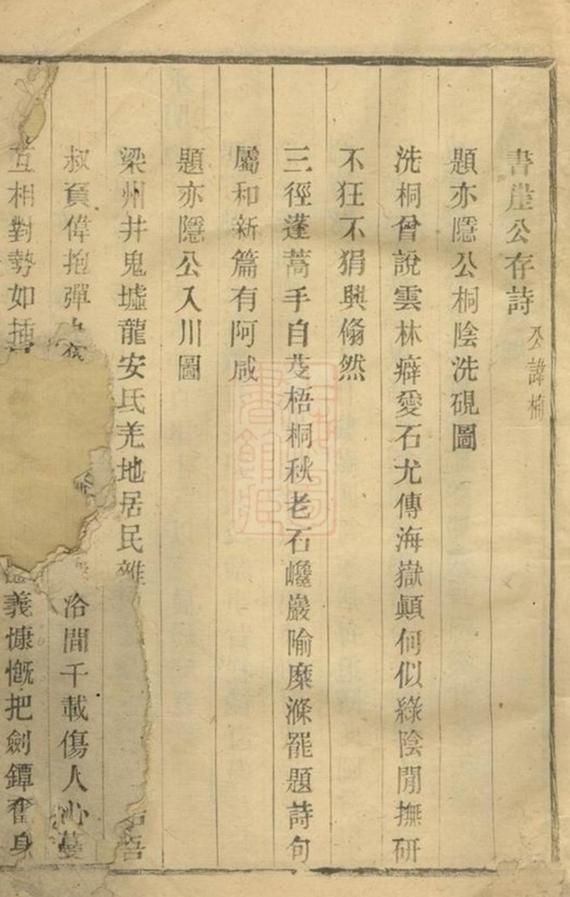 書崖公存詩 公諱楠
題亦隱公桐陰洗硯圖
洗桐曾說雲林癖愛石尤傳海嶽顛何似綠陰閒撫研
不狂不狷興翛然
三徑蓬蒿手自芟梧桐秋老石巉巖隃糜滌罷題詩句
屬和新篇有阿咸
題亦隱公入川圖
梁州井鬼墟龍安氐羌地居民雜 吾
叔負偉抱彈 洽聞千載傷人心蔓
互相對勢如 義慷慨把劍鐔奮身